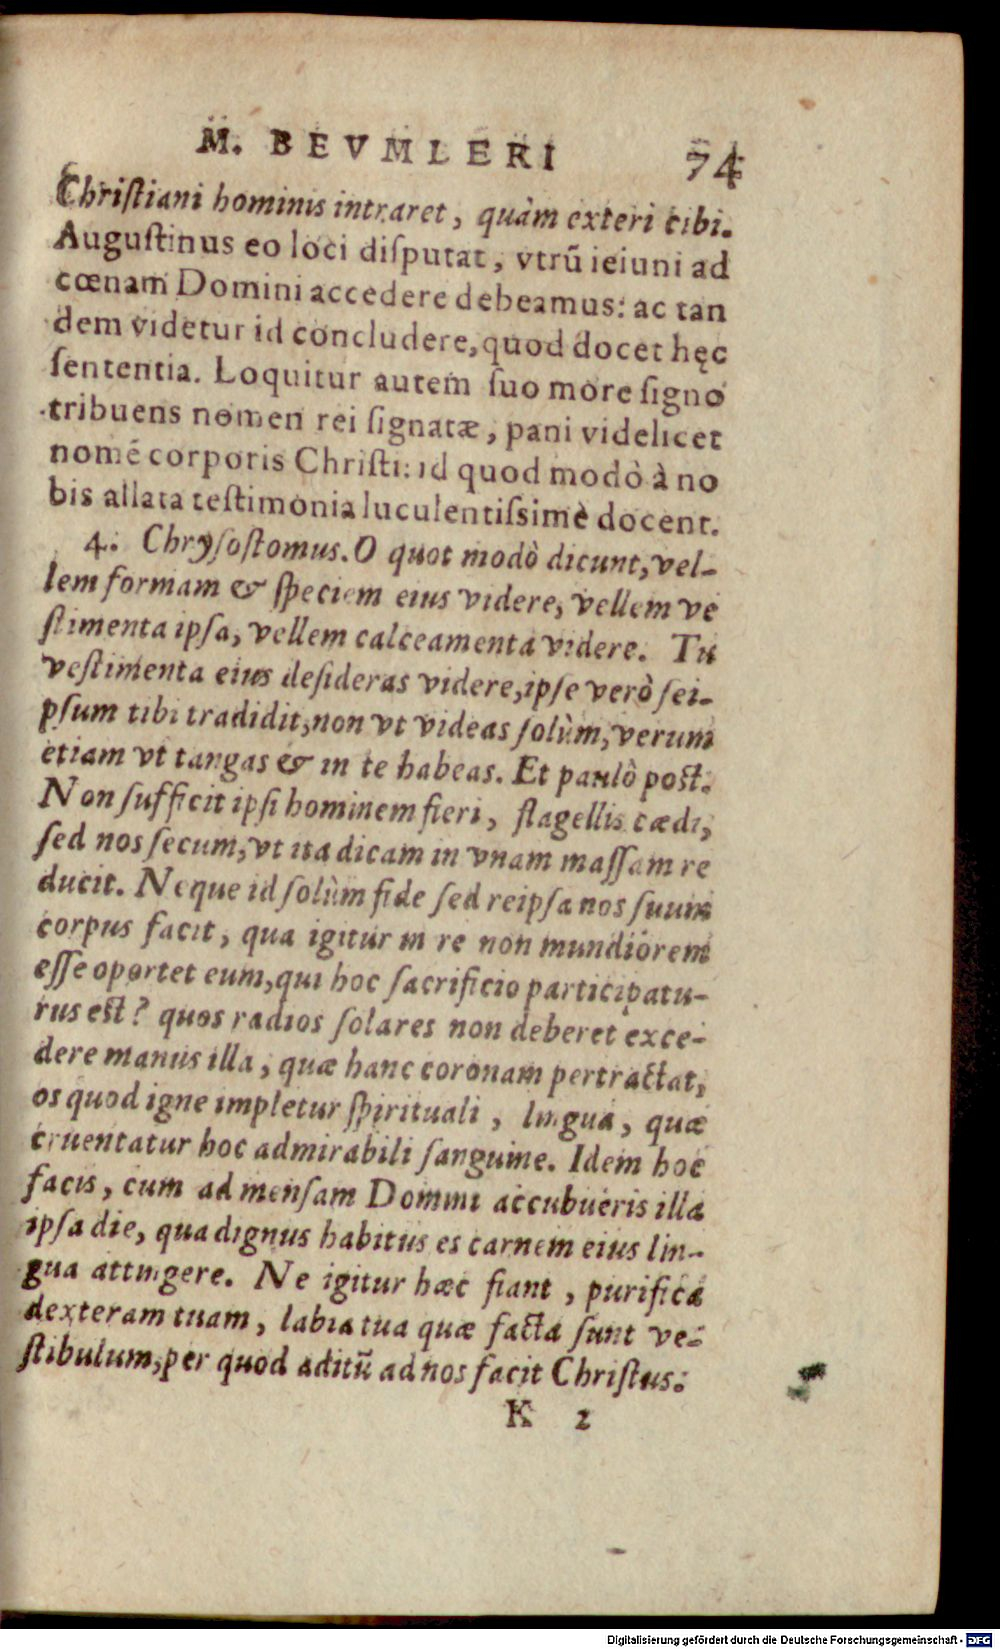 M. BEVMLERI 74
Chriſtiani hominis intraret, quàm exteri cibi.
Auguſtinus eo loci diſputat, vtrũ ieiuni ad
cœnam Domini accedere debeamus: ac tan
dem videtur id concludere, quod docet hęc
ſententia. Loquitur autem ſuo more ſigno
tribuens nomen rei ſignatæ, pani videlicet
nomẽ corporis Chriſti: id quod modò à no
bis allata teſtimonia luculentiſsimè docent.
4. Chryſoſtomus. O quot modò dicunt, vel-
lem formam & ſpeciem eius videre, vellem ve
ſtimenta ipſa, vellem calceamenta videre. Tu
veſtimenta eius deſideras videre, ipſe verò ſei-
pſum tibi tradidit, non vt videas ſolùm, verum
etiam vt tangas & in te habeas. Et paulò poſt.
Non ſufficit ipſi hominem fieri, flagellis cædi,
ſed nos ſecum, vt ita dicam in vnam maſſam re
ducit. Neque id ſolùm fide ſed reipſa nos ſuum
corpus facit, qua igitur in re non mundiorem
eſſe oportet eum, qui hoc ſacrificio participatu-
rus eſt? quos radios ſolares non deberet exce-
dere manus illa, quæ hanc coronam pertractat,
os quod igne impletur ſpirituali, lingua, quæ
cruentatur hoc admirabili ſanguine. Idem hoc
facis, cum ad menſam Domini accubueris illa
ipſa die, qua dignus habitus es carnem eius lin-
gua attingere. Ne igitur hæc fiant, purifica
dexteram tuam, labia tua quæ facta ſunt ve-
ſtibulum, per quod aditũ ad nos facit Chriſtus.
K 2
Digitalisierung gefördert durch die Deutsche Forschungsgemeinschaft - DFG